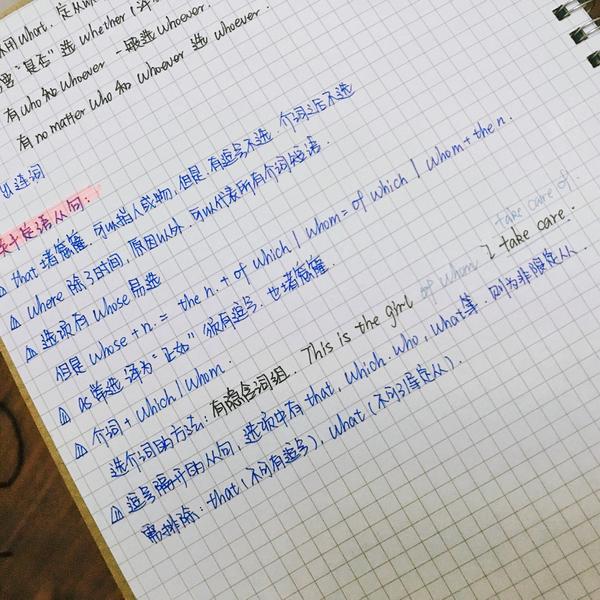 用what. 定从
"是否" 选 whether
有 who 和 whoever 一般选 whoever.
有 no matter who 和 whoever 选 whoever.
连词
关于定语从句:
△ that 堵窟窿, 可以指人或物, 但是, 有逗号不选 介词之后不选
△ where 除了时间, 原因以外, 可以代表所有介词短语.
△ 选项有 whose 易选
但是 whose + n. = the n. + of which / whom = of which / whom + the n.
△ as 常选 译为 "正如" 须有逗号. 也堵窟窿
△ 介词 + which / whom.
选介词的方法: 有隐含词组. This is the girl of whom I take care.
take care of.
△ 逗号隔开的从句, 选项中有 that, which. who, what等, 则为非限定从.
需排除: that (不可有逗号), what (不可引导定从).